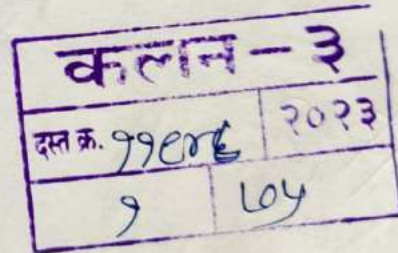 कलन - ३
दस्त क्र. ११९४६ २०२३
१ ७५